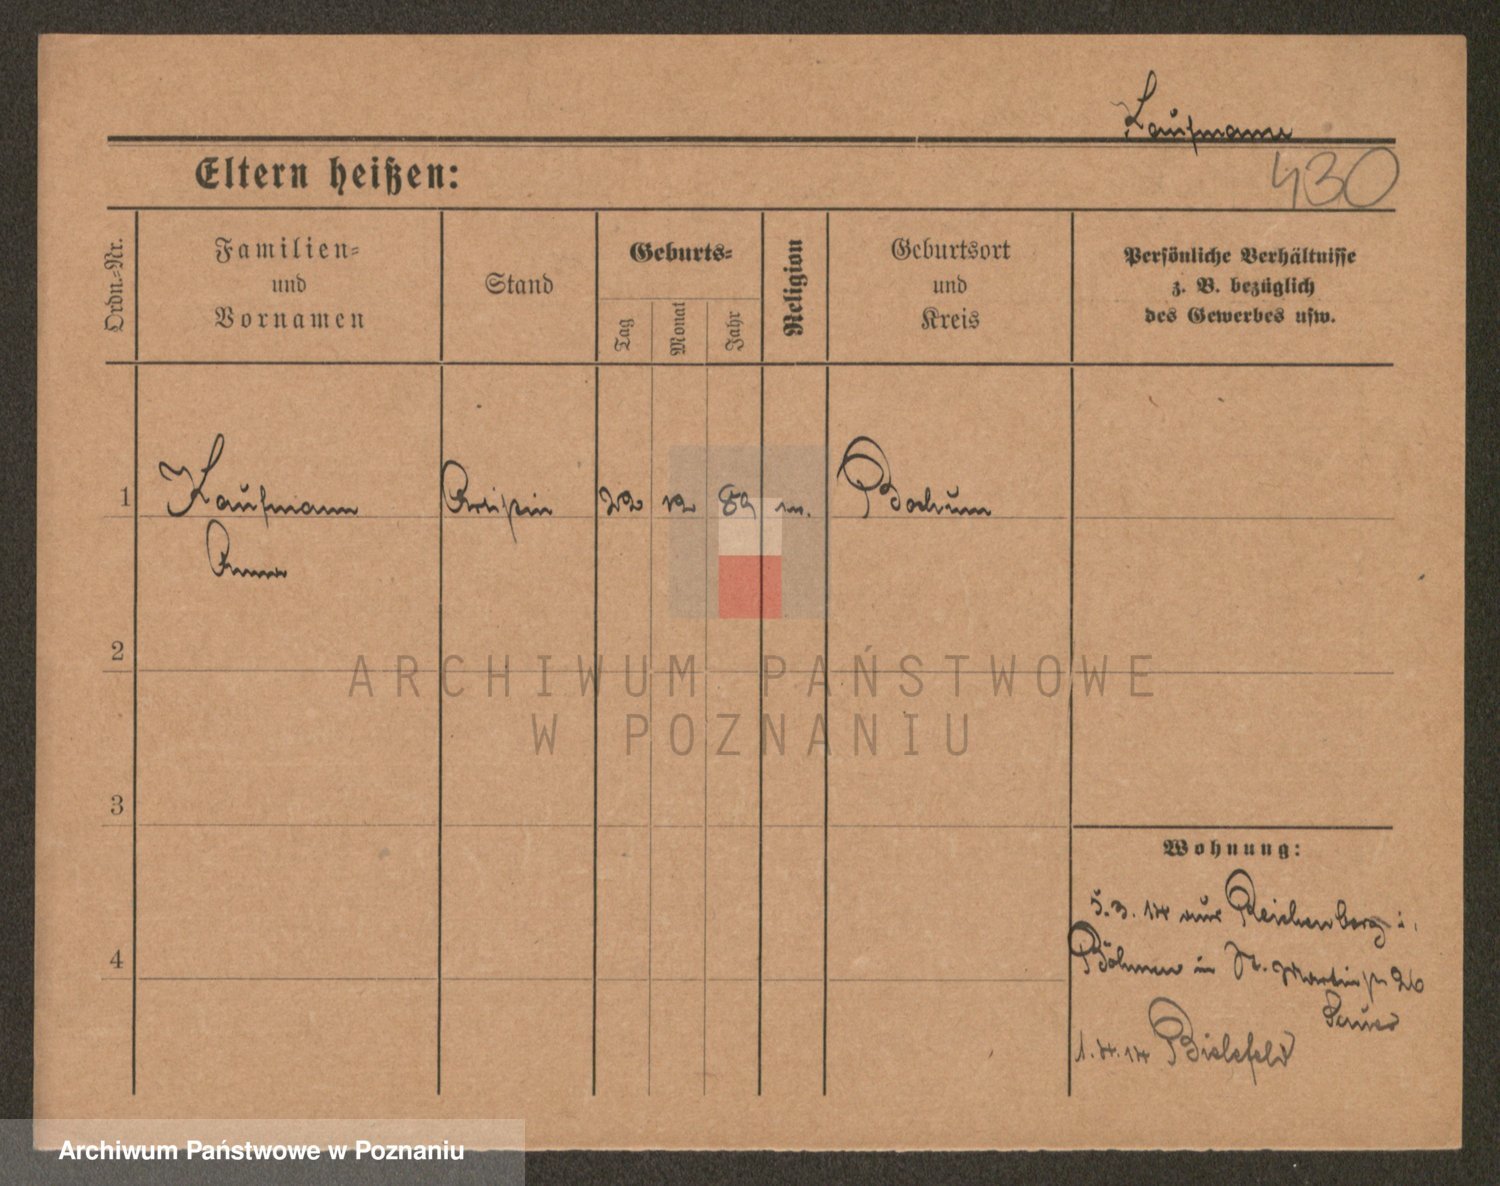 Kaufmann
430
Eltern heißen:
Ordn.-Nr.
Familien-
und
Vornamen
Stand
Geburts-
Tag
Monat
Jahr
Religion
Geburtsort
und
Kreis
Persönliche Verhältnisse
z. B. bezüglich
des Gewerbes usw.
1
Kaufmann
Artistin
22
12
89
Bochum
Anna
2
ARCHIWUM PAŃSTWOWE
W POZNANIU
3
Wohnung:
5.3.14 aus Reichenberg i.
4
Böhmen in St. Martinstr 26
1.4.14 Bielefeld
Archiwum Państwowe w Poznaniu